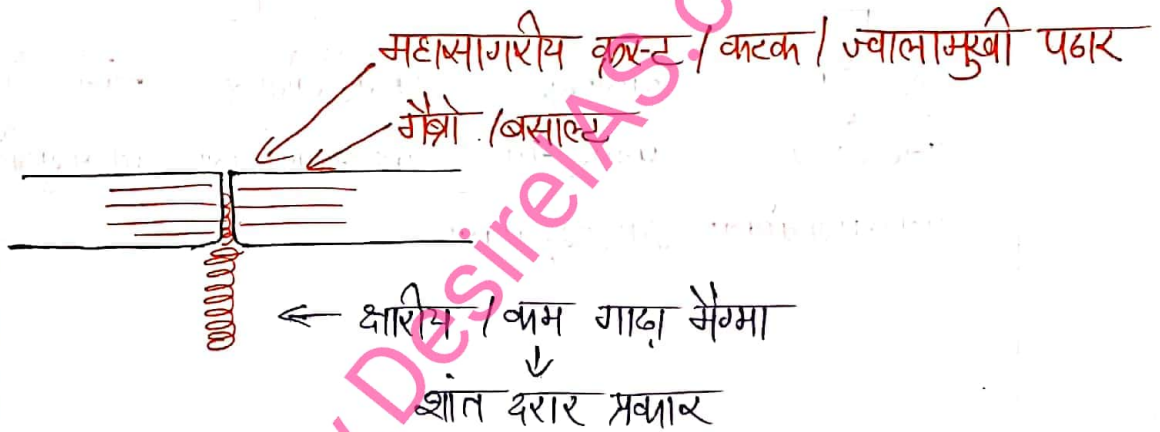 महासागरीय क्रस्ट / कटक / ज्वालामुखी पठार
गैब्रो / बसाल्ट
← क्षारीय / कम गाढ़ा मैग्मा
↓
शांत दरार प्रकार
DesireIAS.c